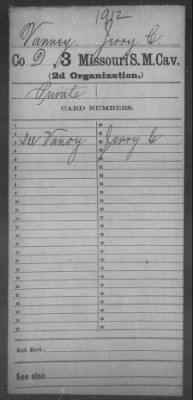 1912
Vanney, Jerry C.
Co D, 3 Missouri S. M. Cav.
(2d Organization.)
Private
CARD NUMBERS.
See Vanoy Jerry C
Book Mark:
See also